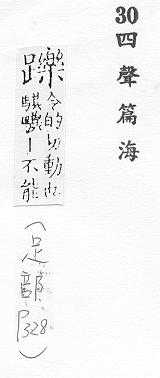 30 四聲篇海
躒
令的切動也
騏驥｜不能
(足韻 P328)